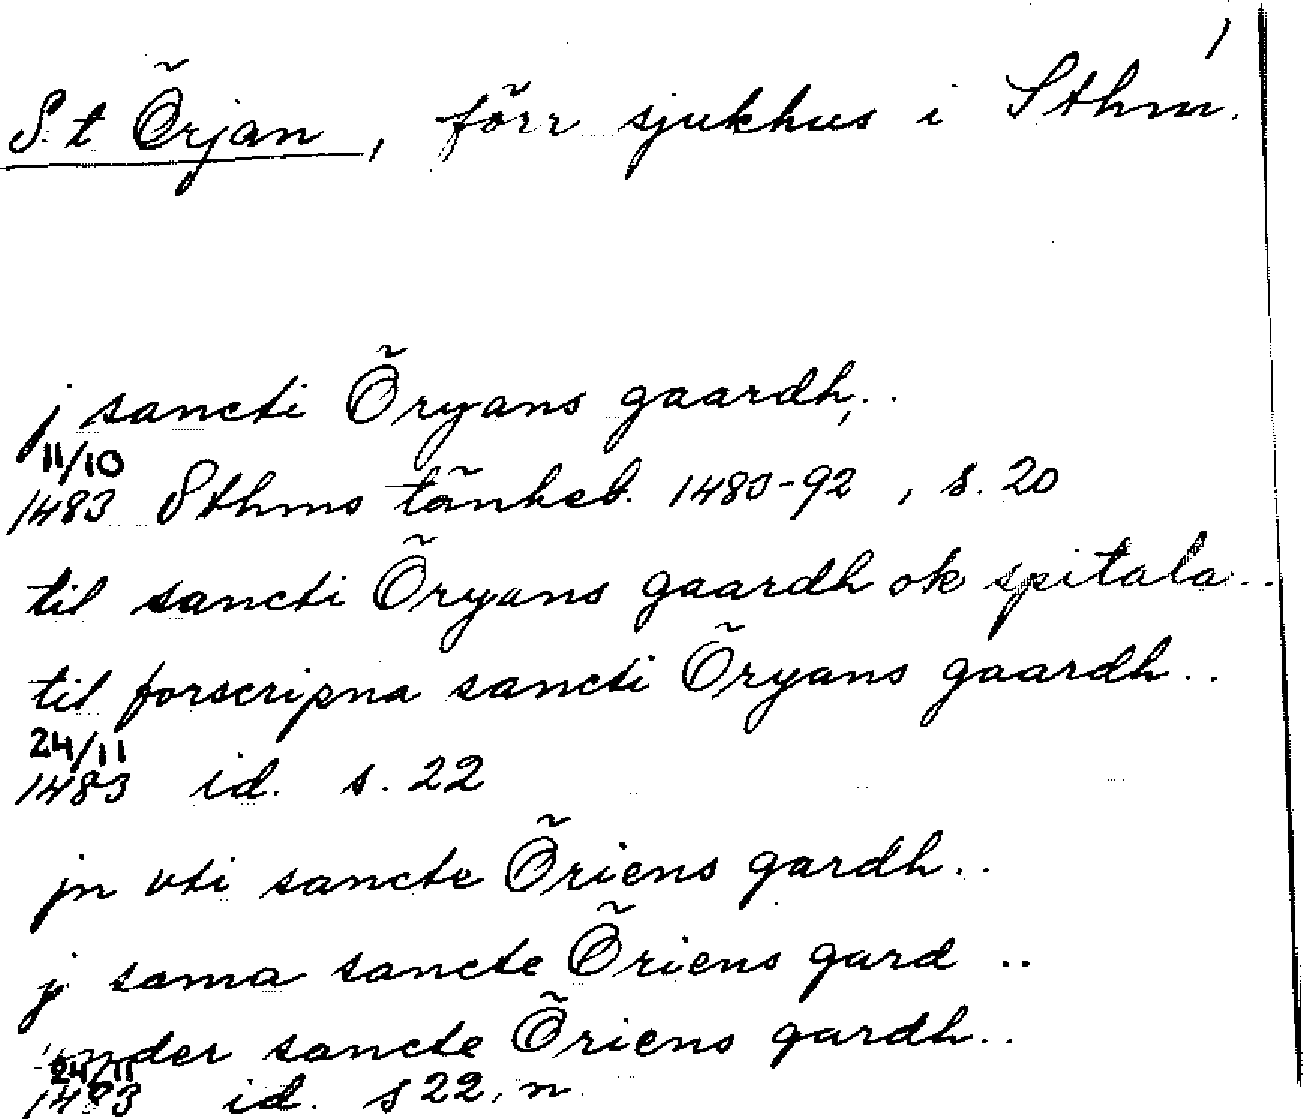 1
S:t Örjan, förr sjukhus i Sthm.
j sancti Öryans gaardh..
11/10
1483 Sthms tänkeb. 1483-92, s. 20
til sancti Öryans gaardh ok spitala..
til forscripna sancti Öryans gaardh..
24/11
1483 id. s. 22
jn vti sancte Öriens gardh..
j sama sancte Öriens gard ..
vnder sancte Öriens gardh..
24/11
1483 id. s 22, n